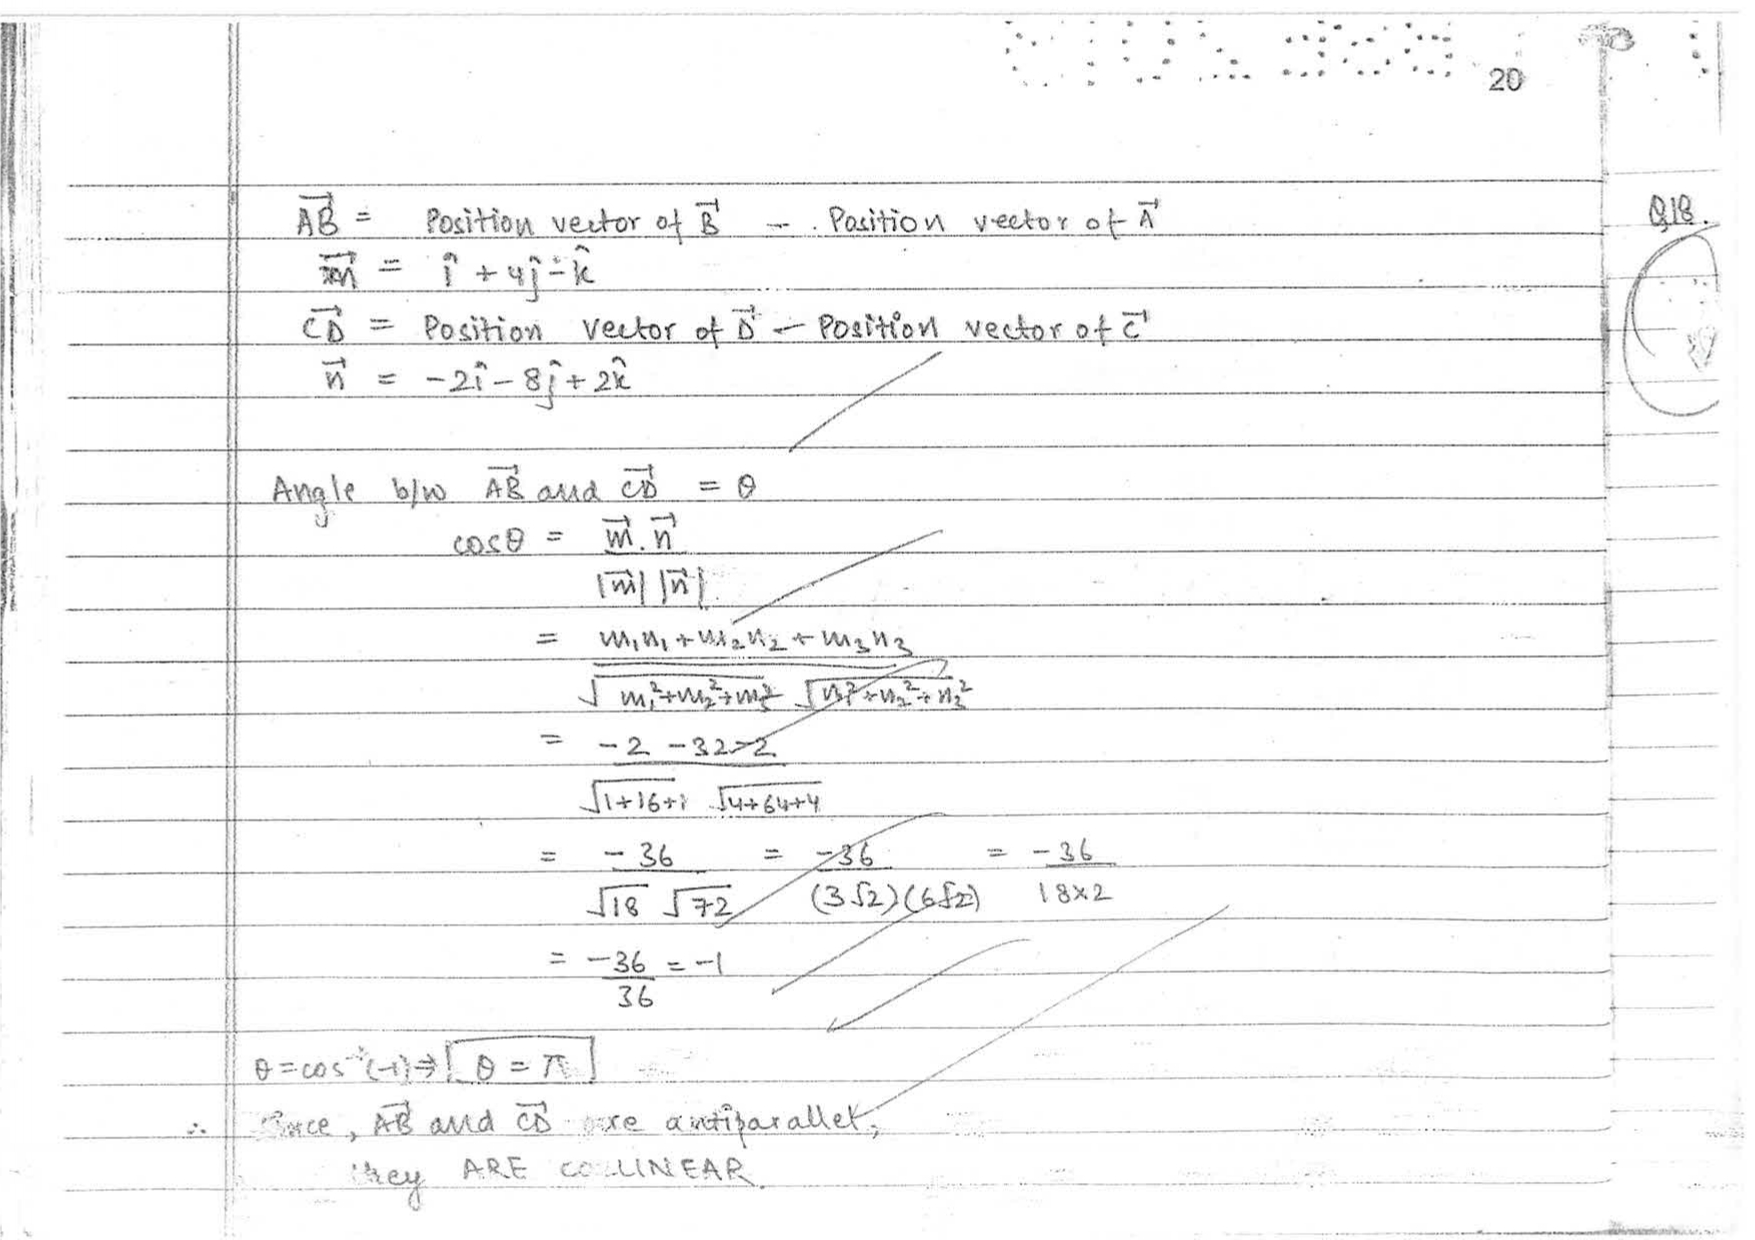 20
AB⃗ = Position vector of B⃗ - Position vector of A⃗
m⃗ = î + 4ĵ - k̂
CD⃗ = Position vector of D⃗ - Position vector of C⃗
n⃗ = -2î - 8ĵ + 2k̂
Angle b/w AB⃗ and CD⃗ = θ
cosθ = m⃗.n⃗
|m⃗| |n⃗|
= m₁n₁ + m₂n₂ + m₃n₃
√m₁²+m₂²+m₃² √n₁²+n₂²+n₃²
= -2 -32 -2
√1+16+1 √4+64+4
= -36 = -36 = -36
√18 √72 (3√2)(6√2) 18×2
= -36 = -1
36
θ = cos⁻¹(-1) ⇒ θ = π
∴ Since, AB⃗ and CD⃗ are antiparallel,
they ARE COLLINEAR
Q18.